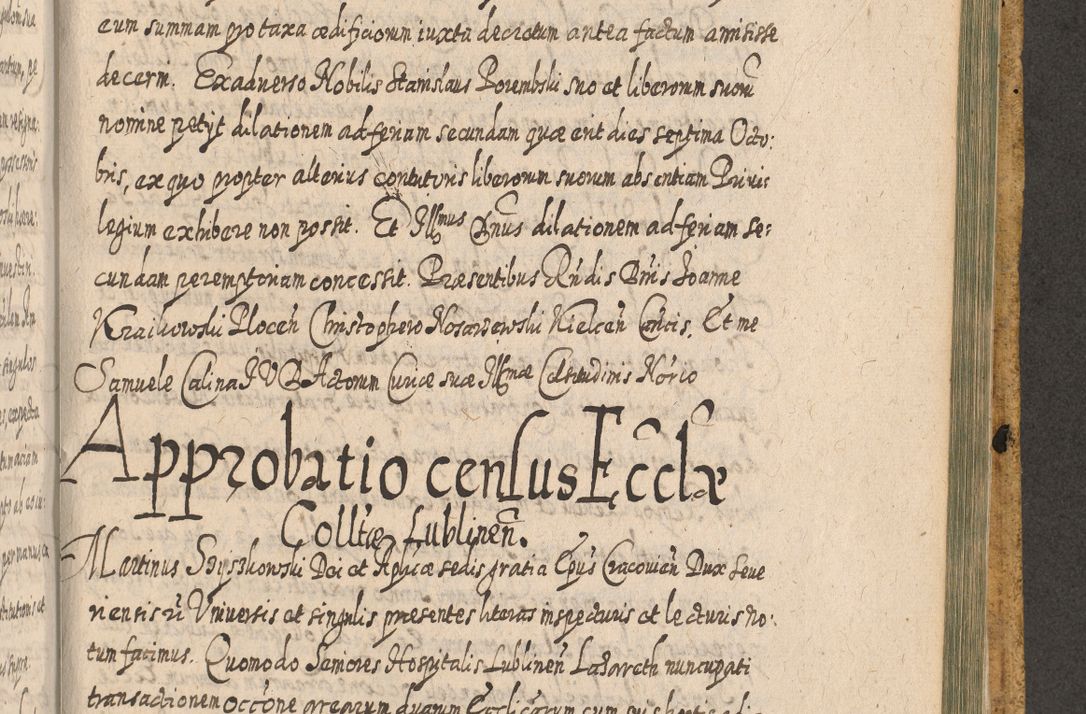 eum summam pro taxa ædificiorum iuxta decretum antea factum amisisse
decerni. Exadverso Nobilis Stanislaus Porembski suo et liberorum suorū
nomine petijt dilationem ad feriam secundam quæ erit dies septima Octo:
bris, ex quo propter alterius contutoris liberorum suorum absentiam Privi:
legium exhibere non possit. Et Illmus Dnūs dilationem ad feriam se:
cundam peremptoriam concessit. Præsentibus Rñdis Dñis Joanne
Plocen̄ Christophero Kielcen̄ Cancis. Et me
Samuele Calina JUD Actorum Curiæ suæ Illmæ Celsitudinis Nōrio
Approbatio census Ecclæ
Colltæ Lublinen̄.
Martinus Szyszkowski Dei et Aplicæ sedis gratia Epūs Cracovien̄ Dux Seve
riensis Universis et singulis præsentes literas inspecturis et lecturis no:
tum facimus. Quomodo Seniores Hospitalis Lublinen̄ Lazareth nuncupati
transactionem occōne arearum duarum Ecclicarum cum